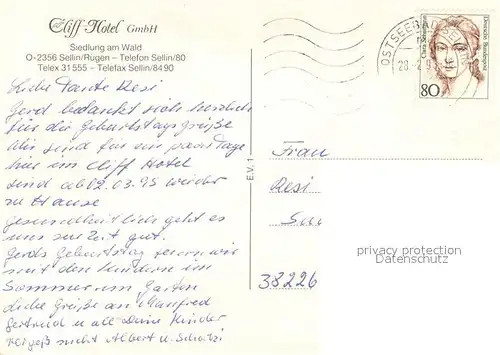 Cliff-Hotel GmbH
Siedlung am Wald
O-2356 Sellin/Rügen - Telefon Sellin/80
Telex 31555 - Telefax Sellin/8490
Liebe Tante Resi
Gerd bedankt sich herzlich
für die Geburtstagsgrüße
Wir sind für ein paar Tage
hier im Cliff Hotel
sind ab 02.03.95 wieder
zu Hause
gesundheitlich geht es
uns zur Zeit gut.
Gerds Geburtstag feiern wir
mit den Kindern im
Sommer im Garten
liebe Grüße an Manfred
Gertrud u. all Deine Kinder
vergeß nicht Albert u. Schatzi
E.V. 1
OSTSEEBAD SELLIN
20.-2.9
Clara Schumann
Deutsche Bundespost
80
Frau
Resi
38226
privacy protection
Datenschutz